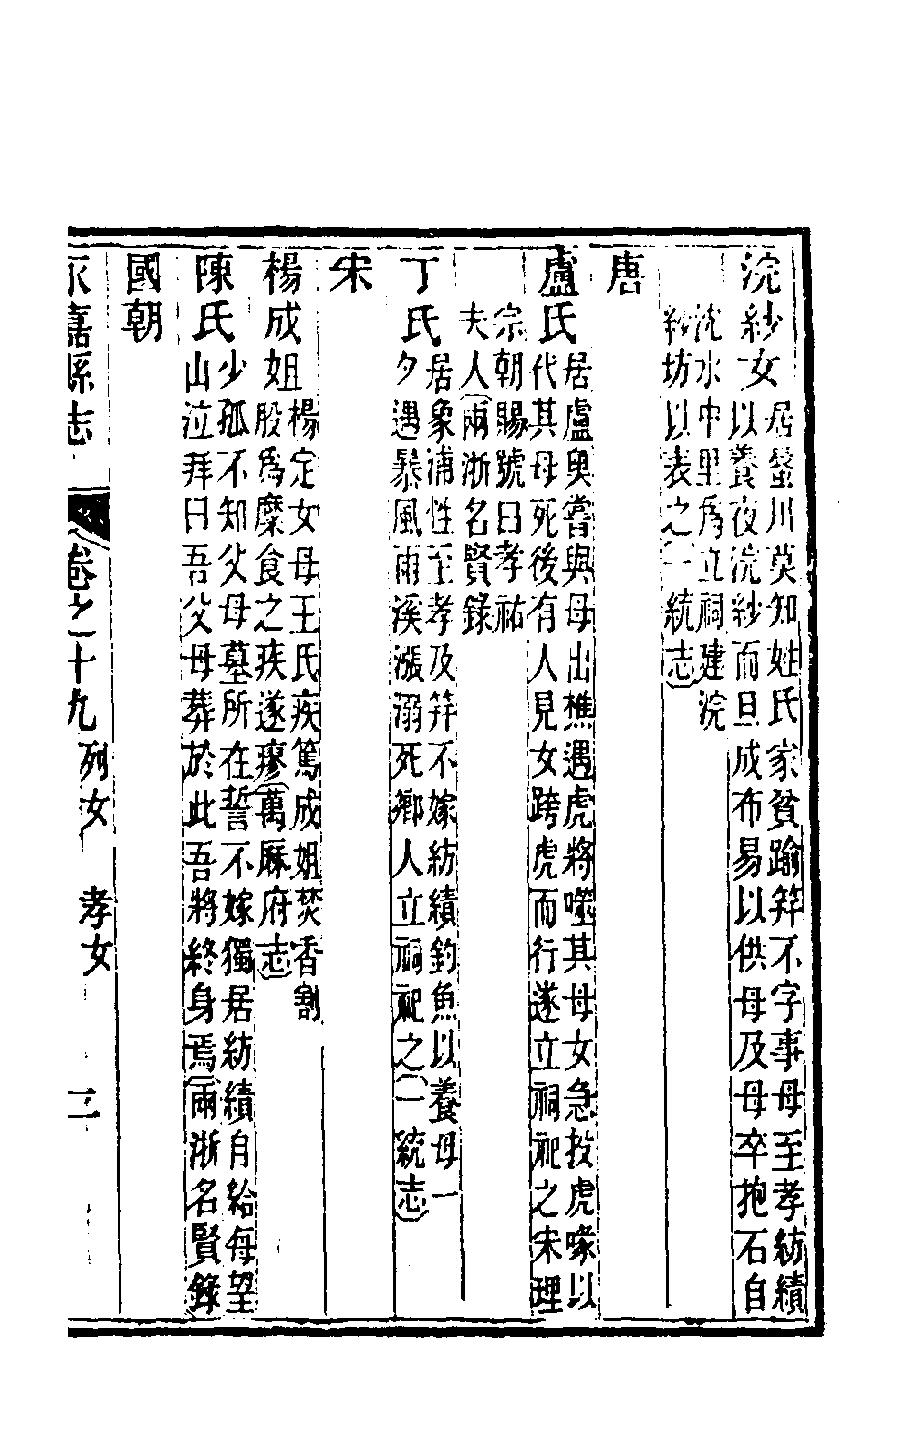 浣紗女居蜃川莫知姓氏家貧踰笄不字事母至孝紡績
以養夜浣紗而旦成布易以供母及母卒抱石自
沈水中里爲立祠建浣
紗坊以表之一統志
唐
盧氏居盧奥嘗與母出樵遇虎將噬其母女急投虎喙以
代其母死後有人見女跨虎而行遂立祠祀之宋理
宗朝賜號曰孝祐
夫人兩浙名賢錄
丁氏居象浦性至孝及笄不嫁紡績釣魚以養母一
夕遇暴風雨溪漲溺死鄉人立祠祀之一統志
宋
楊成姐楊定女母王氏疾篤成姐焚香割
股爲糜食之疾遂瘳萬厤府志
陳氏少孤不知父母墓所在誓不嫁獨居紡績自給每望
山泣拜曰吾父母葬於此吾將終身焉兩浙名賢錄
國朝
永嘉縣志
卷之十九 列女 孝女 三